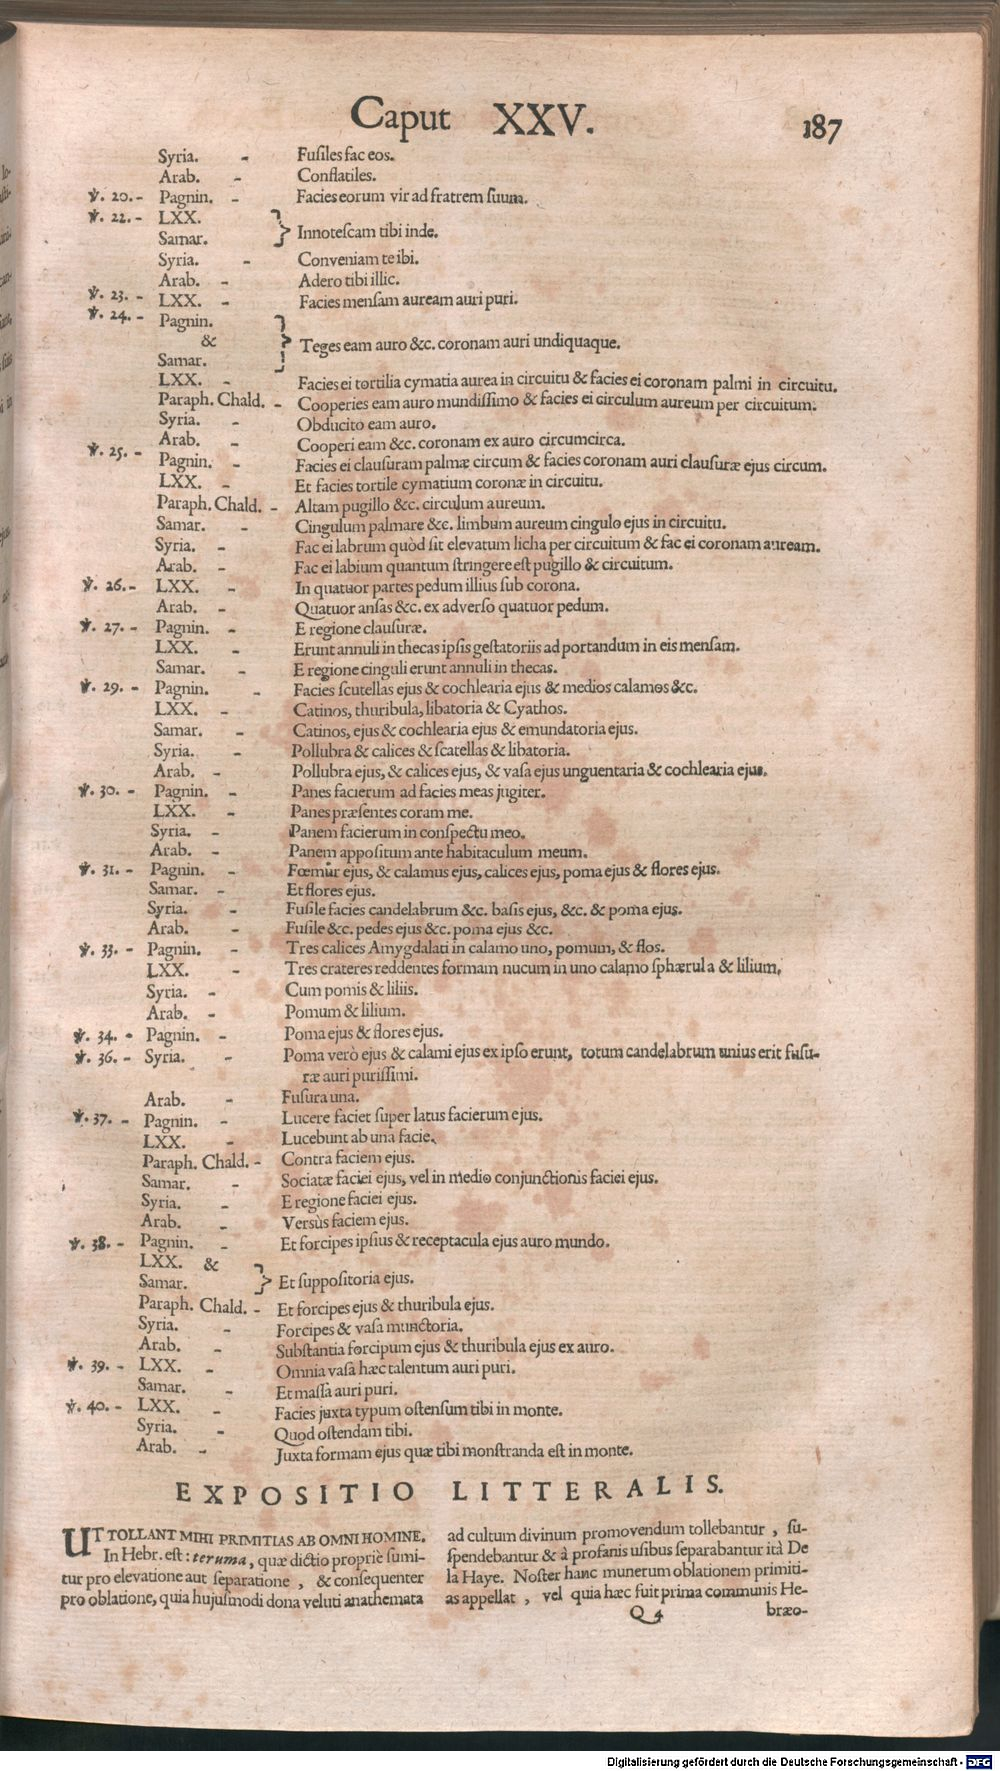 Caput XXV. 187
Syria. - Fuſiles fac eos.
Arab. - Conflatiles.
℣. 20. - Pagnin. - Facies eorum vir ad fratrem ſuum.
℣. 22. - LXX.
Samar. } Innoteſcam tibi inde.
Syria. - Conveniam te ibi.
Arab. - Adero tibi illic.
℣. 23. - LXX. - Facies menſam auream auri puri.
℣. 24. - Pagnin.
& } Teges eam auro &c. coronam auri undiquaque.
Samar.
LXX. - Facies ei tortilia cymatia aurea in circuitu & facies ei coronam palmi in circuitu.
Paraph. Chald. - Cooperies eam auro mundiſſimo & facies ei circulum aureum per circuitum.
Syria. - Obducito eam auro.
Arab. - Cooperi eam &c. coronam ex auro circumcirca.
℣. 25. - Pagnin. - Facies ei clauſuram palmæ circum & facies coronam auri clauſuræ ejus circum.
LXX. - Et facies tortile cymatium coronæ in circuitu.
Paraph. Chald. - Altam pugillo &c. circulum aureum.
Samar. - Cingulum palmare &c. limbum aureum cingulo ejus in circuitu.
Syria. - Fac ei labrum quòd ſit elevatum licha per circuitum & fac ei coronam auream.
Arab. - Fac ei labium quantum ſtringere eſt pugillo & circuitum.
℣. 26. - LXX. - In quatuor partes pedum illius ſub corona.
Arab. - Quatuor anſas &c. ex adverſo quatuor pedum.
℣. 27. - Pagnin. - E regione clauſuræ.
LXX. - Erunt annuli in thecas ipſis geſtatoriis ad portandum in eis menſam.
Samar. - E regione cinguli erunt annuli in thecas.
℣. 29. - Pagnin. - Facies ſcutellas ejus & cochlearia ejus & medios calamos &c.
LXX. - Catinos, thuribula, libatoria & Cyathos.
Samar. - Catinos, ejus & cochlearia ejus & emundatoria ejus.
Syria. - Pollubra & calices & ſcatellas & libatoria.
Arab. - Pollubra ejus, & calices ejus, & vaſa ejus unguentaria & cochlearia ejus.
℣. 30. - Pagnin. - Panes facierum ad facies meas jugiter.
LXX. - Panes præſentes coram me.
Syria. - Panem facierum in conſpectu meo.
Arab. - Panem appoſitum ante habitaculum meum.
℣. 31. - Pagnin. - Fœmur ejus, & calamus ejus, calices ejus, poma ejus & flores ejus.
Samar. - Et flores ejus.
Syria. - Fuſile facies candelabrum &c. baſis ejus, &c. & poma ejus.
Arab. - Fuſile &c. pedes ejus &c. poma ejus &c.
℣. 33. - Pagnin. - Tres calices Amygdalati in calamo uno, pomum, & flos.
LXX. - Tres crateres reddentes formam nucum in uno calamo ſphærula & lilium.
Syria. - Cum pomis & liliis.
Arab. - Pomum & lilium.
℣. 34. - Pagnin. - Poma ejus & flores ejus.
℣. 36. - Syria. - Poma verò ejus & calami ejus ex ipſo erunt, totum candelabrum unius erit fuſu-
ræ auri puriſſimi.
Arab. - Fuſura una.
℣. 37. - Pagnin. - Lucere faciet ſuper latus facierum ejus.
LXX. - Lucebunt ab una facie.
Paraph. Chald. - Contra faciem ejus.
Samar. - Sociatæ faciei ejus, vel in medio conjunctionis faciei ejus.
Syria. - E regione faciei ejus.
Arab. - Versùs faciem ejus.
℣. 38. - Pagnin. - Et forcipes ipſius & receptacula ejus auro mundo.
LXX. &
Samar. } Et ſuppoſitoria ejus.
Paraph. Chald. - Et forcipes ejus & thuribula ejus.
Syria. - Forcipes & vaſa munctoria.
Arab. - Subſtantia forcipum ejus & thuribula ejus ex auro.
℣. 39. - LXX. - Omnia vaſa hæc talentum auri puri.
Samar. - Et maſſâ auri puri.
℣. 40. - LXX. - Facies juxta typum oſtenſum tibi in monte.
Syria. - Quod oſtendam tibi.
Arab. - Juxta formam ejus quæ tibi monſtranda eſt in monte.
EXPOSITIO LITTERALIS.
UT TOLLANT MIHI PRIMITIAS AB OMNI HOMINE.
In Hebr. eſt: teruma, quæ dictio propriè ſumi-
tur pro elevatione aut ſeparatione, & conſequenter
pro oblatione, quia hujuſmodi dona veluti anathemata
ad cultum divinum promovendum tollebantur, ſu-
ſpendebantur & à profanis uſibus ſeparabantur ità De
la Haye. Noſter hanc munerum oblationem primiti-
as appellat, vel quia hæc fuit prima communis He-
Q 4 bræo-
Digitalisierung gefördert durch die Deutsche Forschungsgemeinschaft - DFG